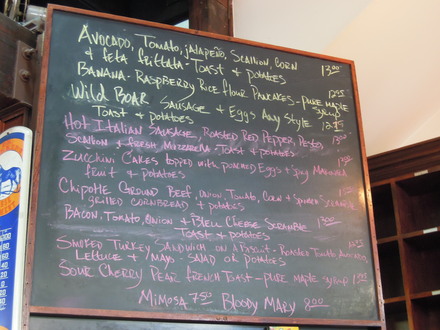 Avocado, Tomato, jalapeño, Scallion, Corn
& feta frittata - Toast & potatoes 13.00
Banana - Raspberry Rice flour Pancakes - pure maple syrup 12.95
Wild Boar Sausage & Eggs Any Style
Toast & potatoes 12.95
Hot Italian Sausage, Roasted Red Pepper, Pesto,
Scallion & fresh Mozzarella Toast & potatoes
Zucchini Cakes topped with poached Eggs & Spicy Marinara
fruit & potatoes
Chipotle Ground Beef, Onion, Tomato, Corn &
grilled cornbread & potatoes
Bacon, Tomato, Onion & Bleu Cheese Scramble
Toast & potatoes 13.00
Smoked Turkey Sandwich on a Biscuit - Roasted Tomato, Avocado,
Lettuce & Mayo - Salad or potatoes
Sour Cherry Pear French Toast - pure maple syrup
Mimosa 7.95 Bloody Mary 8.00